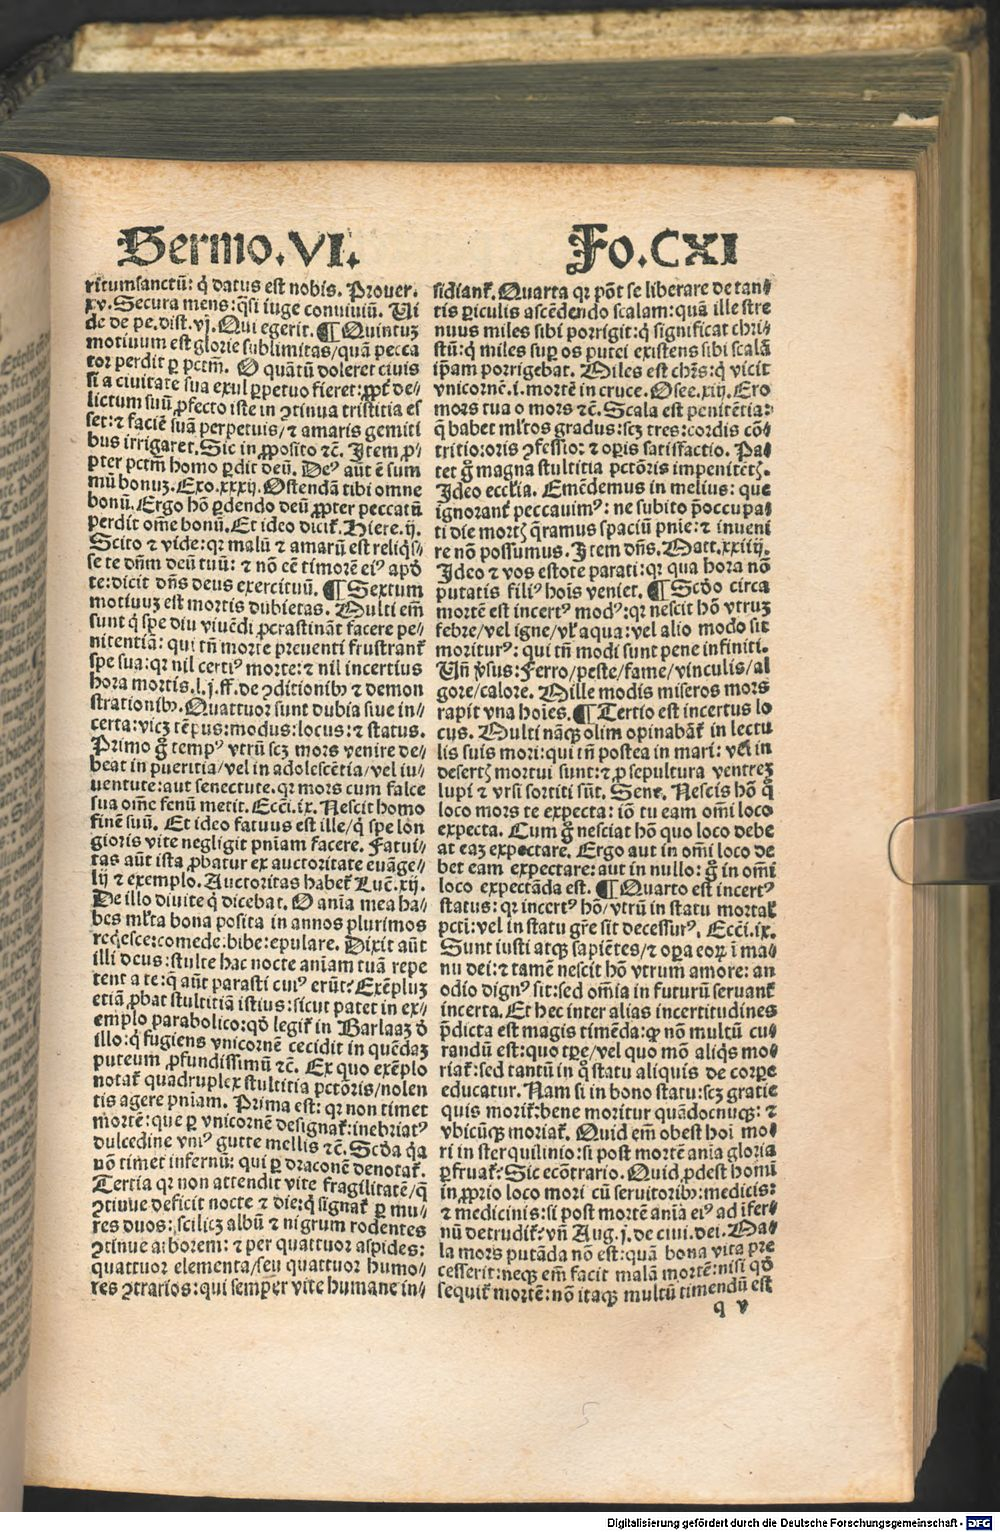 Sermo.VI.
Fo.CXI
ritumsanctū: q̇ datus est nobis. Prouer.
xv. Secura mens: q̄si iuge conuiuiū. Ui
de de pe. dist. vj. Qui egerit. ¶ Quintuꝫ
motiuum est glorie sublimitas/quā pecca
tor perdit ꝑ pctm̄. O quātū doleret ciuis
si a ciuitate sua exul ꝑpetuo fieret: ꝓpt̄ de⸗
lictum suū ꝓfecto iste in ꝯtinua tristitia es
set: ⁊ faciē suā perpetuis/⁊ amaris gemiti
bus irrigaret. Sic in ꝓposito ⁊c̄. Item ꝓ⸗
pter pctm̄ homo ꝑdit deū. Deꝰ aūt ē sum
mū bonuꝫ. Exo. xxxij. Ostendā tibi omne
bonū. Ergo hō ꝑdendo deū ꝓpter peccatū
perdit om̄e bonū. Et ideo dicit᷑. Hiere. ij.
Scito ⁊ vide: qꝛ malū ⁊ amarū est reliq̇s⸗
se te dn̄m deū tuū: ⁊ nō eē timorē eiꝰ apd̄
te: dicit dn̄s deus exercituū. ¶ Sextum
motiuuꝫ est mortis dubietas. Multi em̄
sunt q̇ spe diu viuēdi ꝓcrastināt facere pe⸗
nitentiā: qui tn̄ morte preuenti frustrant᷑
spe sua: qꝛ nil certiꝰ morte: ⁊ nil incertius
hora mortis. l. j. ff. de ꝯditionibꝰ ⁊ demon
strationibꝰ. Quattuor sunt dubia siue in⸗
certa: vicꝫ tēpus: modus: locus: ⁊ status.
Primo g̊ tempꝰ vtrū scꝫ mors venire de⸗
beat in pueritia/vel in adolescētia/vel iu⸗
uentute: aut senectute. qꝛ mors cum falce
sua om̄e fenū metit. Ecc̄i. ix. Nescit homo
finē suū. Et ideo fatuus est ille/q̇ spe lon
gioris vite negligit pn̄iam facere. Fatui⸗
tas aūt ista ꝓbatur ex auctoritate euāge⸗
lij ⁊ exemplo. Auctoritas habet᷑ Luc̄. xij.
De illo diuite q̇ dicebat. O aīa mea ha⸗
bes ml̄ta bona posita in annos plurimos
req̇esce: comede: bibe: epulare. Dixit aūt
illi deus: stulte hac nocte aīam tuā repe
tent a te: q̄ aūt parasti cuiꝰ erūt? Exēpluꝫ
etiā ꝓbat stultitiā istius: sicut patet in ex⸗
emplo parabolico: qd̄ legit᷑ in Barlaaꝫ d̄
illo: q̇ fugiens vnicornē cecidit in quēdaꝫ
puteum ꝓfundissimū ⁊c̄. Ex quo exēplo
notat᷑ quadruplex stultitia pctōris/nolen
tis agere pn̄iam. Prima est: qꝛ non timet
mortē: que ꝑ vnicornē designat᷑: inebriatꝰ
dulcedine vniꝰ gutte mellis ⁊c̄. Scd̄a q̇a
nō timet infernū: qui ꝑ draconē denotat᷑.
Tertia qꝛ non attendit vite fragilitatē/q̄
ꝯtinue deficit nocte ⁊ die: q̇ signat᷑ ꝑ mu⸗
res duos: scilicꝫ albū ⁊ nigrum rodentes
ꝯtinue arborem: ⁊ per quattuor aspides:
quattuor elementa/seu quattuor humo⸗
res ꝯtrarios: qui semper vite humane in⸗
sidiant᷑. Quarta qꝛ pōt se liberare de tan⸗
tis ꝑiculis ascēdendo scalam: quā ille stre
nuus miles sibi porrigit: q̇ significat chri⸗
stū: q̇ miles suꝑ os putei existens sibi scalā
ip̄am porrigebat. Miles est chrs̄: q̇ vicit
vnicornē. i. mortē in cruce. Osee. xiij. Ero
mors tua o mors ⁊c̄. Scala est penitētia:
q̄ habet ml̄tos gradus: scꝫ tres: cordis cō⸗
tritio: oris ꝯfessio: ⁊ oꝑis satisfactio. Pa⸗
tet g̊ magna stultitia pctōris impenitētꝭ.
Ideo eccl̄ia. Emēdemus in melius: que
ignorant᷑ peccauimꝰ: ne subito p̄occupa⸗
ti die mortꝭ q̄ramus spaciū pn̄ie: ⁊ inueni
re nō possumus. Item dn̄s. Matt. xxiiij.
Ideo ⁊ vos estote parati: qꝛ qua hora nō
putatis filiꝰ hoīs veniet. ¶ Scd̄o circa
mortē est incertꝰ modꝰ: qꝛ nescit hō vtruꝫ
febre/vel igne/vl̓ aqua: vel alio modo sit
moriturꝰ: qui tn̄ modi sunt pene infiniti.
Un̄ v̓sus: Ferro/peste/fame/vinculis/al
gore/calore. Mille modis miseros mors
rapit vna hoīes. ¶ Tertio est incertus lo
cus. Multi nāqꝫ olim opinabāt᷑ in lectu
lis suis mori: qui tn̄ postea in mari: vel in
desertꝭ mortui sunt: ⁊ ꝓ sepultura ventreꝫ
lupi ⁊ vrsi sortiti sūt. Sene. Nescis hō q̊
loco mors te expecta: iō tu eam om̄i loco
expecta. Cum g̊ nesciat hō quo loco debe
at eaꝫ expectare. Ergo aut in om̄i loco de
bet eam expectare: aut in nullo: g̊ in om̄i
loco expectāda est. ¶ Quarto est incertꝰ
status: qꝛ incertꝰ hō/vtrū in statu mortal̓
pcti: vel in statu gr̄e sit decessurꝰ. Ecc̄i. ix.
Sunt iusti atqꝫ sapiētes/⁊ oꝑa eoꝝ ī ma⸗
nu dei: ⁊ tamē nescit hō vtrum amore: an
odio dignꝰ sit: sed om̄ia in futurū seruant᷑
incerta. Et hec inter alias incertitudines
p̄dicta est magis timēda: qꝫ nō multū cu⸗
randū est: quo tꝑe/vel quo mō aliq̇s mo⸗
riat᷑: sed tantū in q̊ statu aliquis de corꝑe
educatur. Nam si in bono statu: scꝫ gratie
quis morit᷑: bene moritur quādocūqꝫ: ⁊
vbicūqꝫ moriat᷑. Quid em̄ obest hoī mo⸗
ri in sterquilinio: si post mortē aīa gloria
ꝑfruat᷑? Sic ecōtrario. Quid ꝓdest homī
in ꝓprio loco mori cū seruitoribꝰ: medicis:
⁊ medicinis: si post mortē aīa eiꝰ ad īfer⸗
nū detrudit᷑: vn̄ Aug. j. de ciui. dei. Ma⸗
la mors putāda nō est: quā bona vita pre
cesserit: neqꝫ em̄ facit malā mortē: nisi qd̄
sequit᷑ mortē: nō itaqꝫ multū timendū est
q v
Digitalisierung gefördert durch die Deutsche Forschungsgemeinschaft - DFG